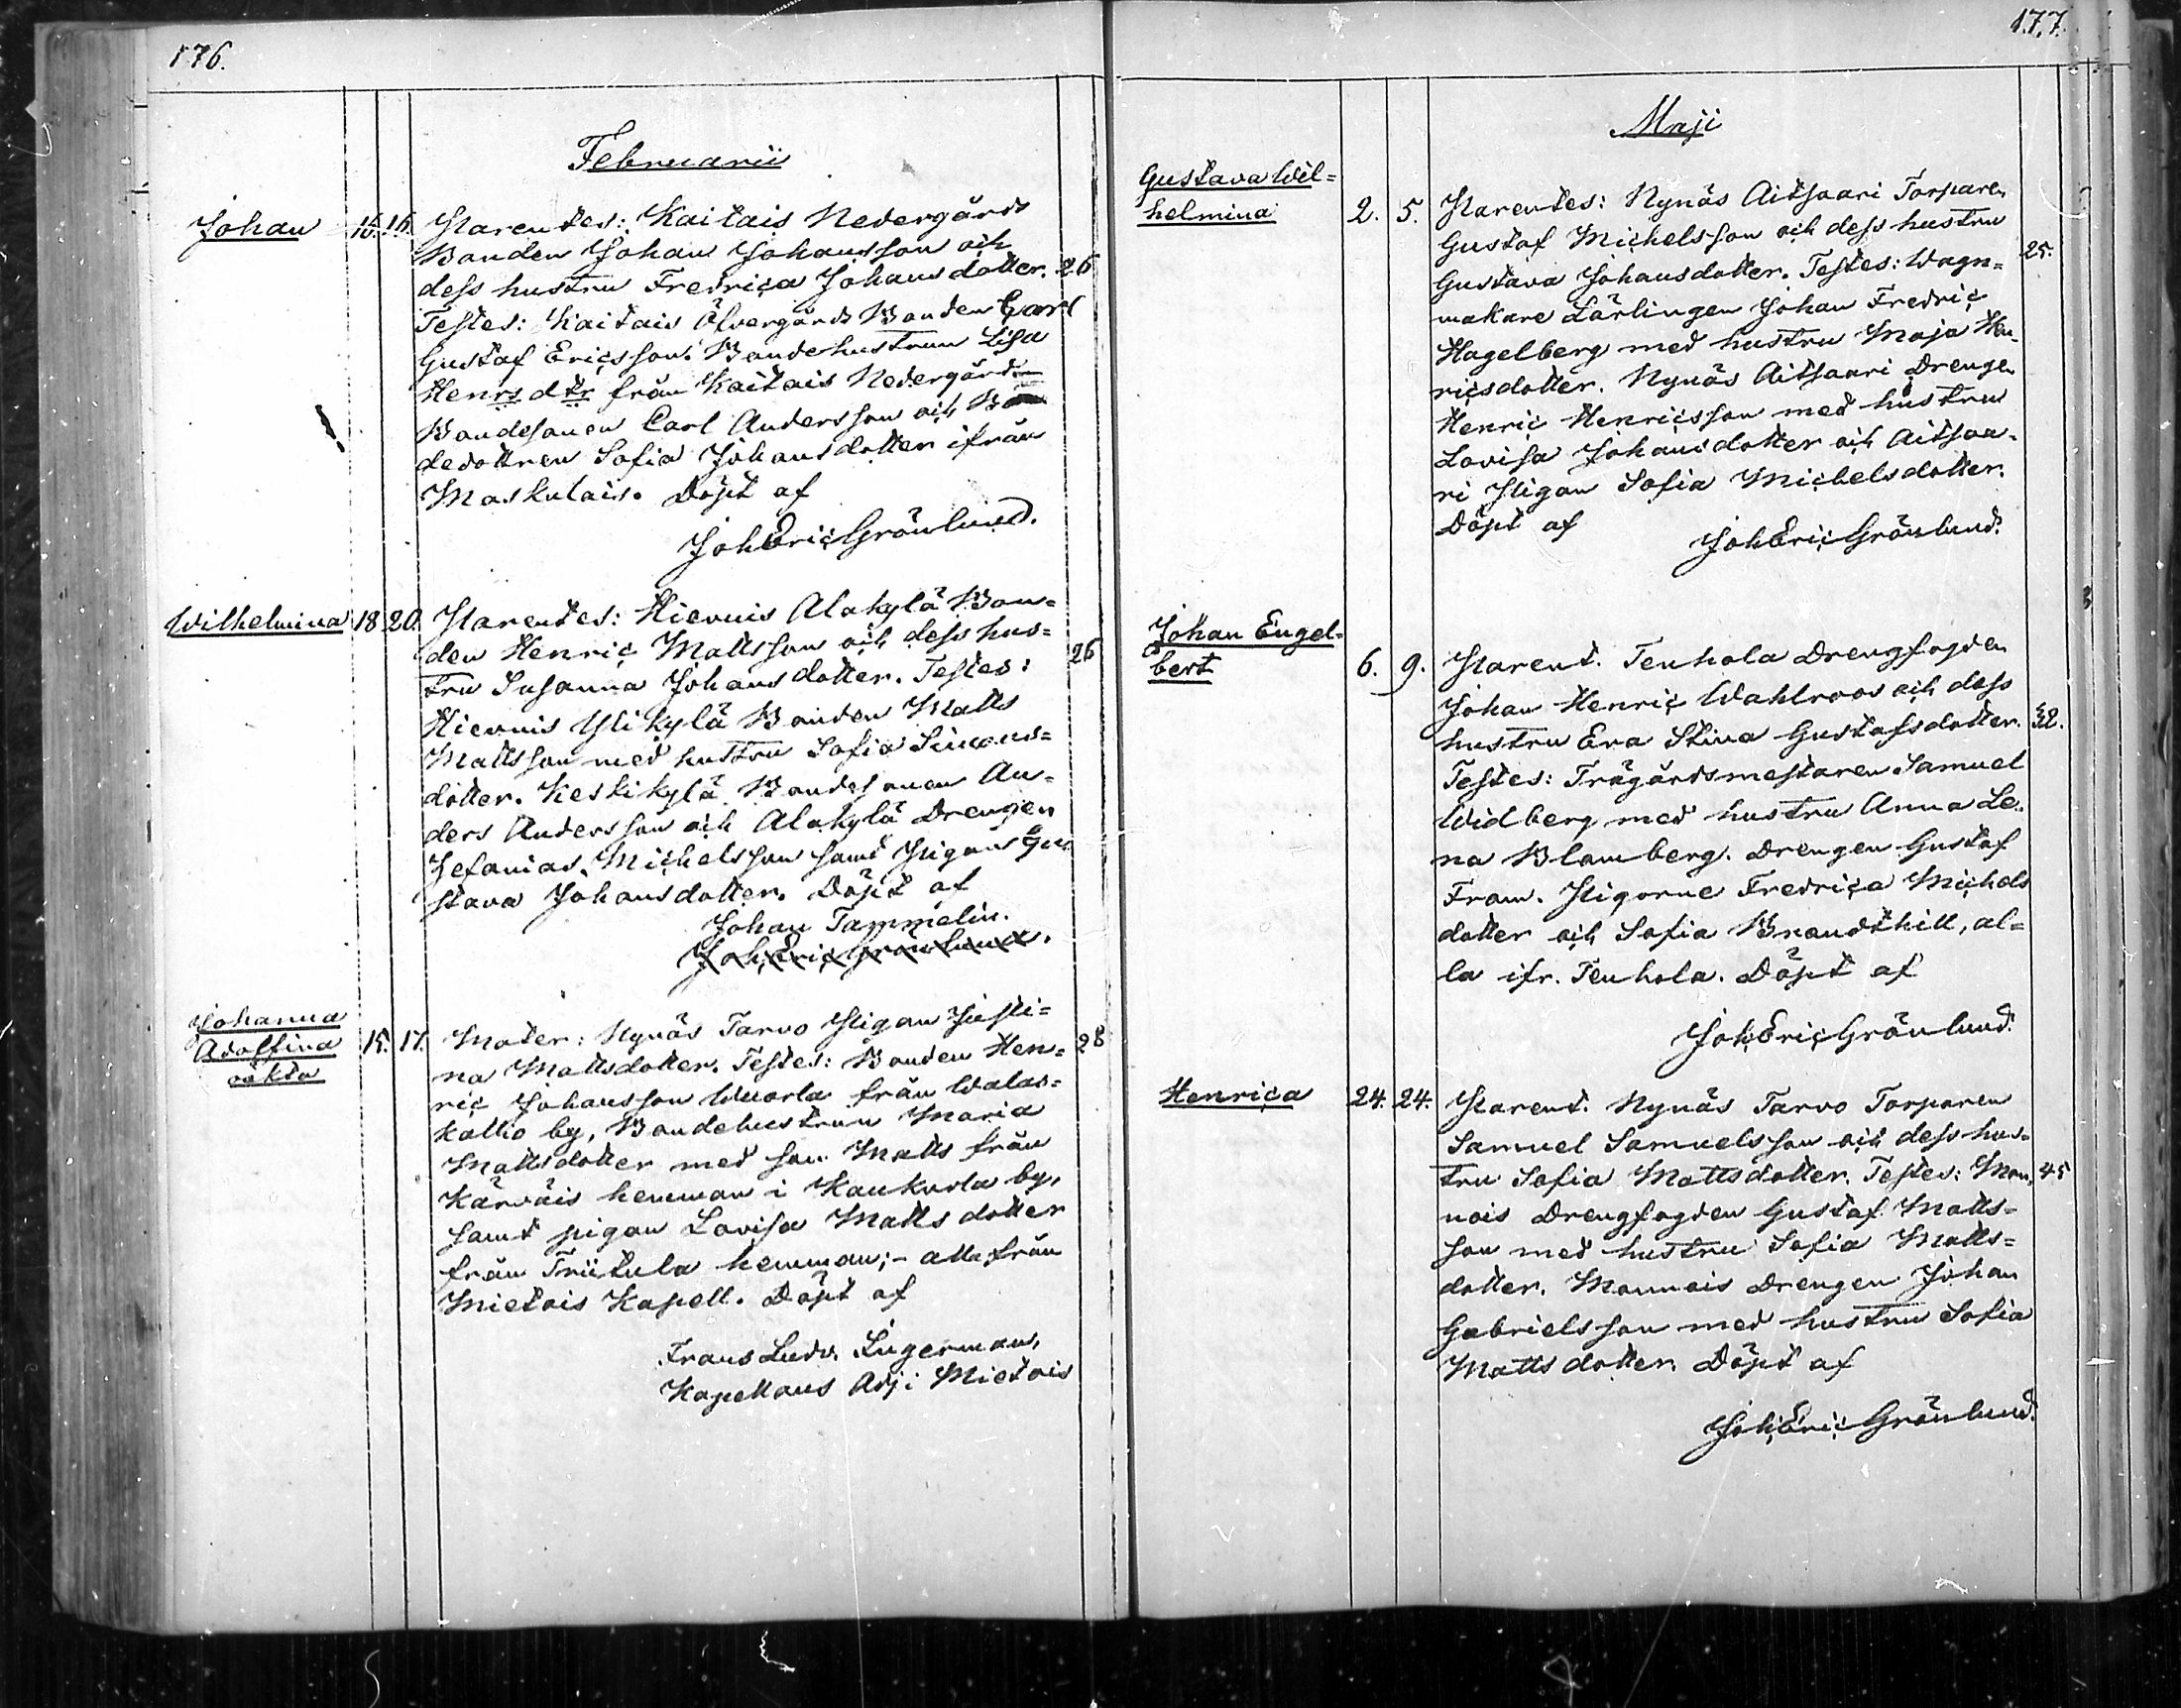 176.
Februarii
Johan 15. 16. Parentes: Kaitais Nedergårds
Bonden Johan Johansson och
dess hustru Fredrica Johansdotter. 26
Testes: Kaitais Öfvergårds Bonden Carl
Gustaf Ericsson. Bondehustrun Lisa
Henrs dtr från Kaitais Nedergård
Bondesonen Carl Andersson och Bon
dedottren Sofia Johansdotter ifrån
Maskulais. Döpt af
Joh Eric Grönlund.
Wilhelmina 18. 20. Parentes: Hiervuis Alakylä Bon=
den Henric Mattsson och dess hus=
tru Susanna Johansdotter. Testes: 26
Hiervuis Ylikylä Bonden Matts
Mattsson med hustru Sofia Simons=
dotter. Keskikylä Bondesonen An=
ders Andersson och Alakylä Drengen
Zefanias Michelsson samt Pigan Gu
stava Johansdotter. Döpt af
Johan Tammelin.
Joh Eric Grönlund.
Johanna
Adolfina
oäkta 15. 17. Mater: Nynäs Tarvo Pigan Justi= 28
na Mattsdotter. Testes: Bonden Hen=
ric Johansson Wuorla från Walas=
kallio by, Bondehustrun Maria
Mattsdotter med son Matts från
Kärväis hemman i Kaukurla by,
samt pigan Lovisa Mattsdotter
från Triitula hemman; - alla från
Mietois Kapell. Döpt af
Frans Ludv. Lugerman,
Kapellans Adj i Mietois
177.
Maji
Gustava Wil=
helmina 2. 5. Parentes: Nynäs Aitsaari Torparen
Gustaf Michelsson och dess hustru
Gustava Johansdotter. Testes: Wagn= 25.
makare Lärlingen Johan Fredric
Hagelberg med hustru Maja Hen
ricsdotter. Nynäs Aitsaari Drengen
Henric Henricsson med hustru
Lovisa Johansdotter och Aitsaa=
ri Pigan Sofia Michelsdotter.
Döpt af
Joh Eric Grönlund.
Johan Engel=
bert 6. 9. Parent. Tenhola Drengfogden
Johan Henric Wahlroos och dess
hustru Eva Stina Gustafsdotter. 32.
Testes: Trägårdsmestaren Samuel
Widberg med hustru Anna Le=
na Blamberg. Drengen Gustaf
Fram. Pigorne Fredrica Michels
dotter och Sofia Brandthill, al=
la ifr. Tenhola. Döpt af
Joh Eric Grönlund.
Henrica 24. 24. Parent. Nynäs Tarvo Torparen
Samuel Samuelsson och dess hus=
tru Sofia Mattsdotter. Testes: Mon= 45
nois Drengfogden Gustaf Matts=
son med hustru Sofia Matts=
dotter. Monnois Drengen Johan
Gabrielsson med hustru Sofia
Mattsdotter. Döpt af
Joh Eric Grönlund.